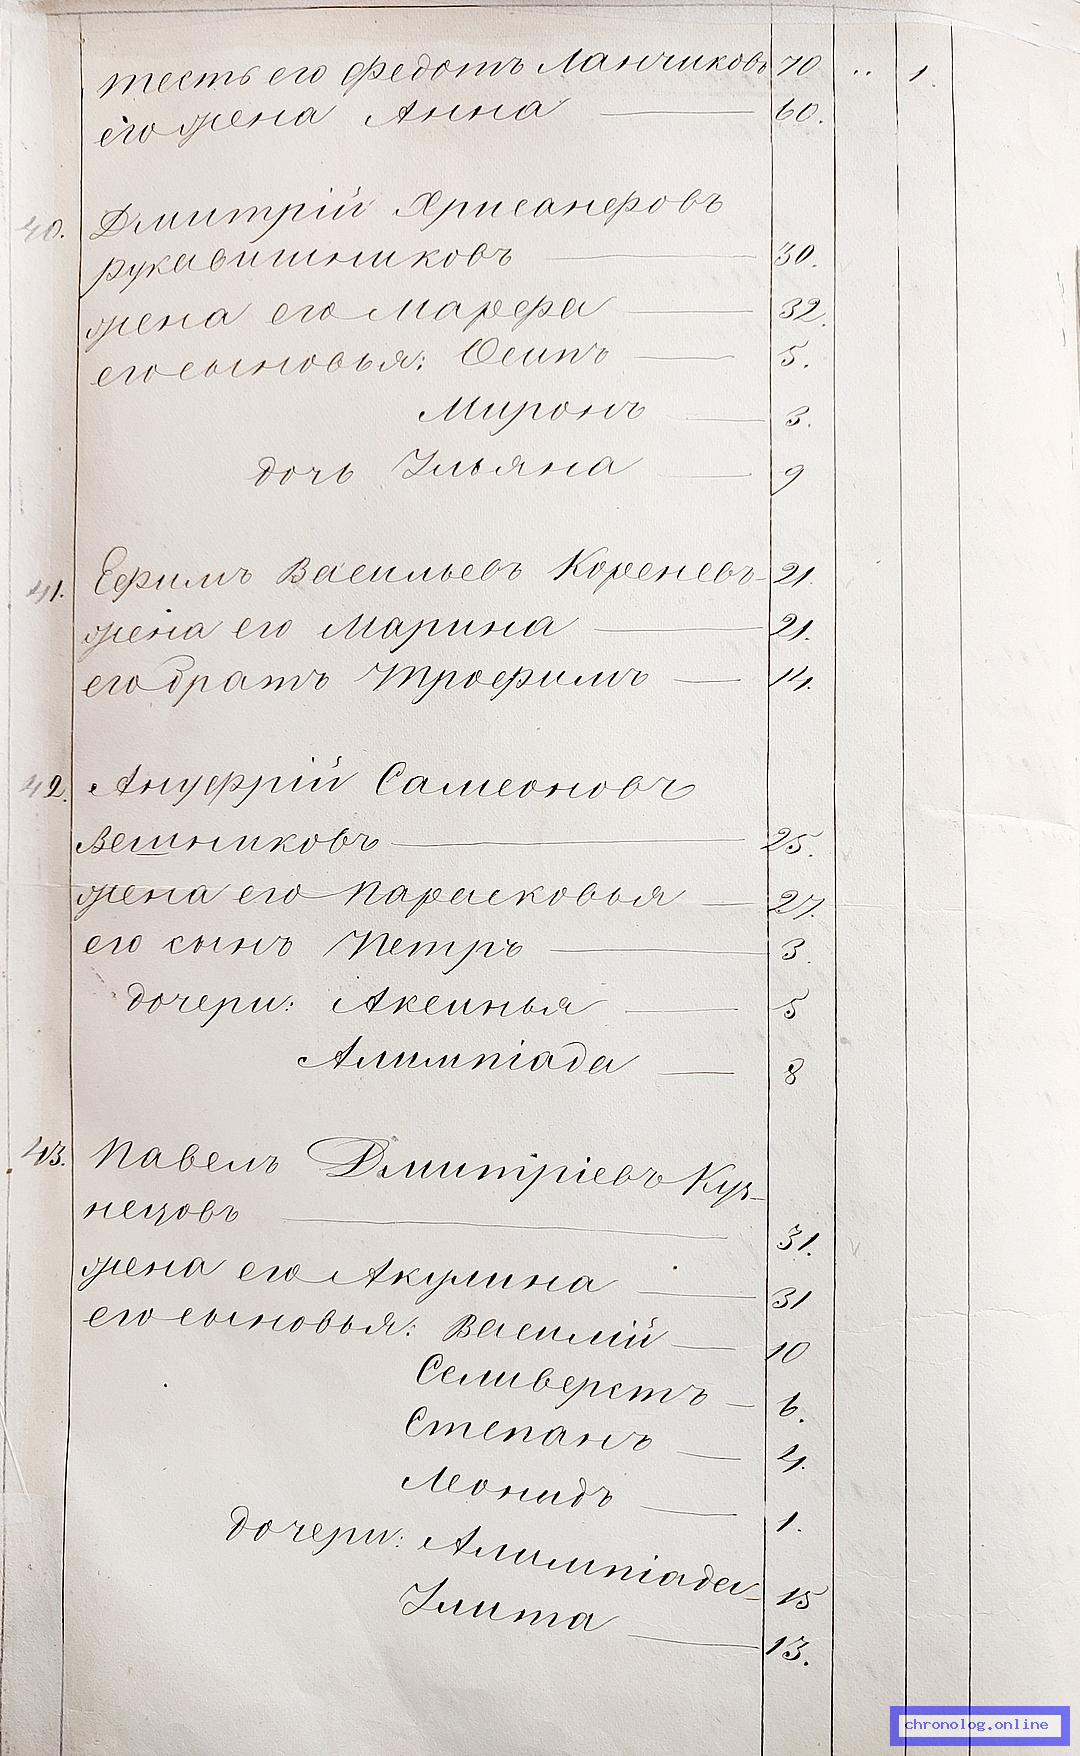 тесть его Федотъ Ланчиковъ 70 .. 1.
его жена Анна 60.
40. Дмитрій Хрисанфовъ
Рукавишниковъ 30.
жена его Марфа 32.
его сыновья: Осипъ 5.
Миронъ 3.
дочь Ульяна 9
41. Ефимъ Васильевъ Кореневъ 21.
жена его Марина 21.
его братъ Трофимъ 14.
42. Ануфрій Самсоновъ
Вешниковъ 25.
жена его Парасковья 27.
его сынъ Петръ 3.
дочери: Аксинья 5
Алимпіада 8
43. Павелъ Дмитріевъ Куз-
нецовъ 31.
жена его Акулина 31
его сыновья: Василій 10
Селиверстъ 6.
Степанъ 4.
Леонидъ 1.
дочери: Алимпіада 15
Улита 13.
chronolog.online